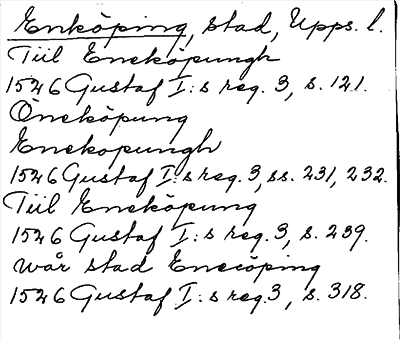 Enköping, stad, Upps. l.
Tiil Eneköpungh
1526 Gustaf I:s reg. 3, s. 121.
Öneköpung
Enekopungh
1526 Gustaf I:s reg. 3, ss. 231, 232.
Tiil Eneköpung
1526 Gustaf I:s reg. 3, s. 239.
wår stad Enecöping
1526 Gustaf I:s reg. 3, s. 318.